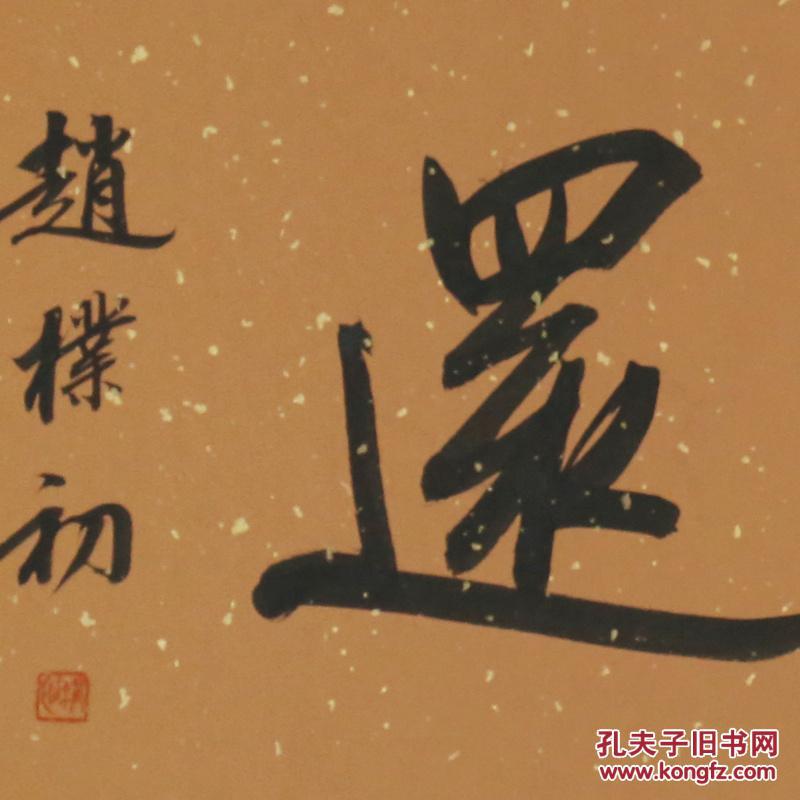 還
趙樸初
孔夫子旧书网
www.kongfz.com